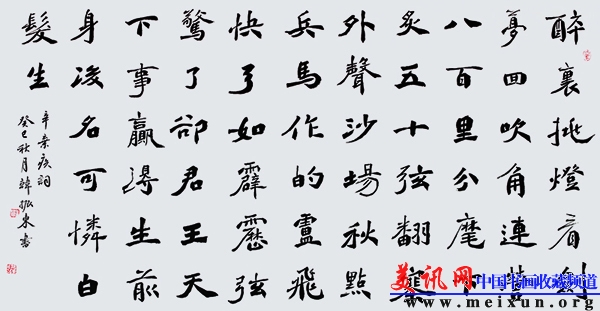 醉裏挑燈看劍
夢回吹角連營
八百里分麾下
炙五十弦翻塞
外聲沙場秋點
兵馬作的盧飛
快弓如霹靂弦
驚了卻君王天
下事贏得生前
身後名可憐白
髮生
辛棄疾詞
癸巳秋月韓東書
美讯网
中国书画收藏频道
www.meixun.org